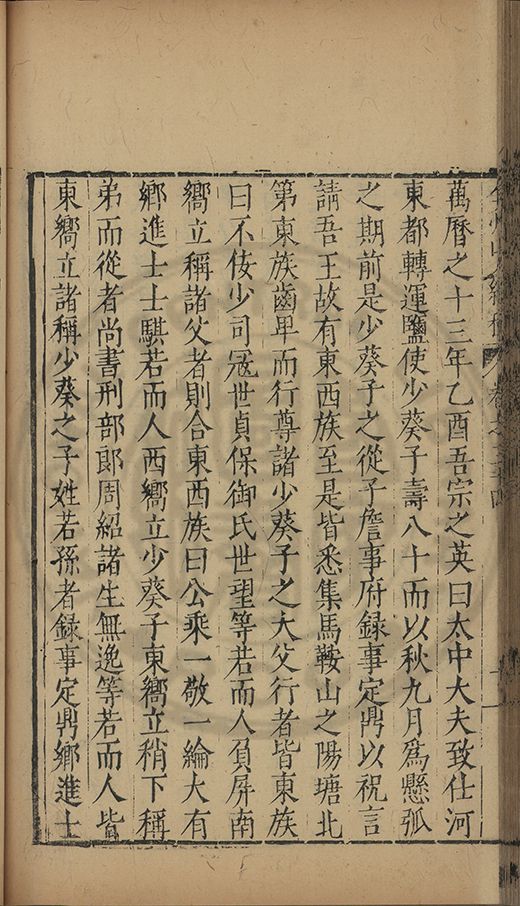 萬曆之十三年乙酉吾宗之英曰太中大夫致仕河
東都轉運鹽使少葵子壽八十而以秋九月爲懸弧
之期前是少葵子之從子詹事府錄事定鼎以祝言
請吾王故有東西族至是皆悉集馬鞍山之陽塘北
第東族齒卑而行尊諸少葵子之大父行者皆東族
曰不佞少司寇世貞保御氏世望等若而人負屏南
嚮立稱諸父者則合東西族曰公乘一敬一綸大有
鄉進士士騏若而人西嚮立少葵子東嚮立稍下稱
弟而從者尚書刑部郎周紹諸生無逸等若而人皆
東嚮立諸稱少葵之子姓若孫者錄事定鼎鄉進士